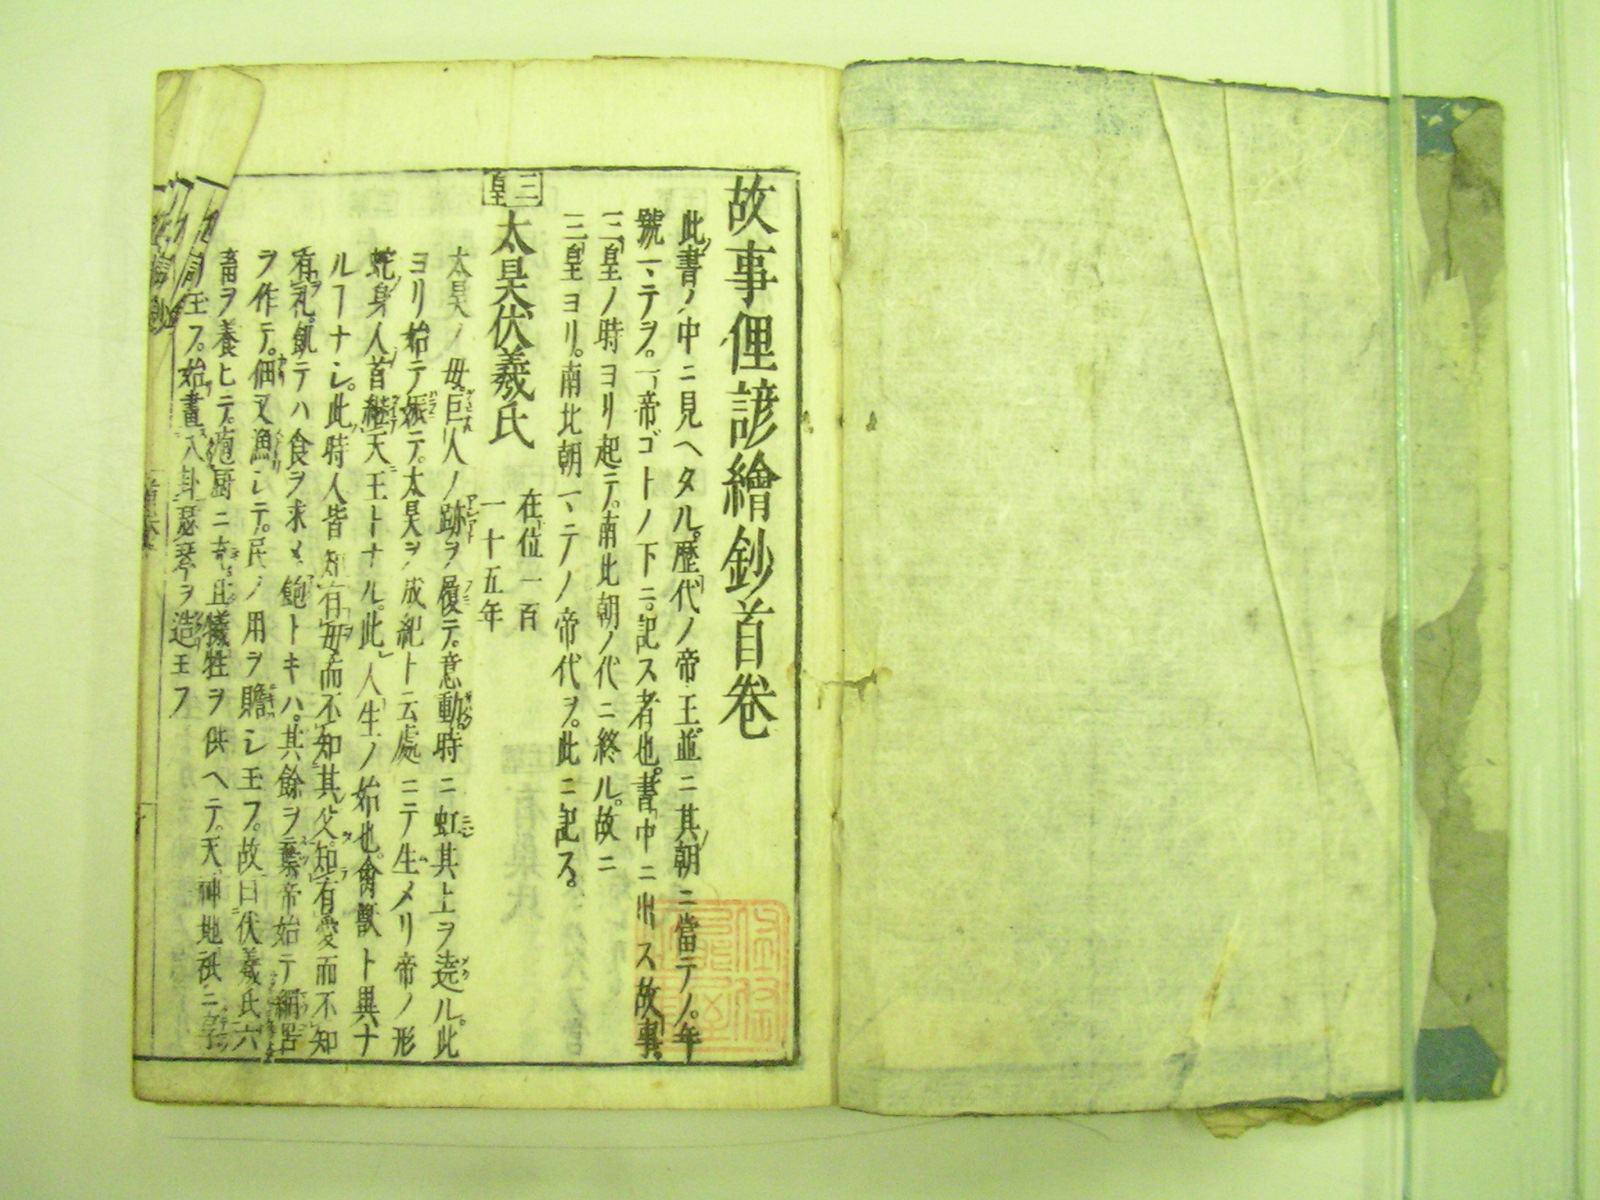 故事俚諺繪鈔首巻
此書ノ中ニ見ヘタル。歴代ノ帝王並ニ其朝ニ當テノ。年
號一テヲ。一帝ゴトノ下ニ。記ス者也。書中ニ出ス故事。
三皇ノ時ヨリ起テ。南北朝ノ代ニ終ル。故ニ
三皇ヨリ。南北朝一テノ帝代ヲ。此ニ記ス。
三皇
太昊伏羲氏 在位一百
一十五年
太昊ノ母。巨人ノ跡ヲ履テ。意動。時ニ虹其上ヲ遶ル。此
ヨリ始テ娠テ。太昊ヲ成紀ト云處ニテ生メリ帝ノ形
蛇身人首継天王トナル。此人生ノ始也。禽獸ト異ナ
ルフナシ。此時人皆知有母而不知其父。知有愛而不知
有礼。飢テハ食ヲ求メ。飽トキハ。其餘ヲ棄帝始テ網罟
ヲ作テ。佃又漁シテ。民ノ用ヲ贍シ玉フ。故曰伏羲氏六
畜ヲ養ヒテ。庖厨ニ充。且犠牲ヲ供ヘテ。天神地祇ニ享
玉フ。始畫八卦瑟琴ヲ造玉フ